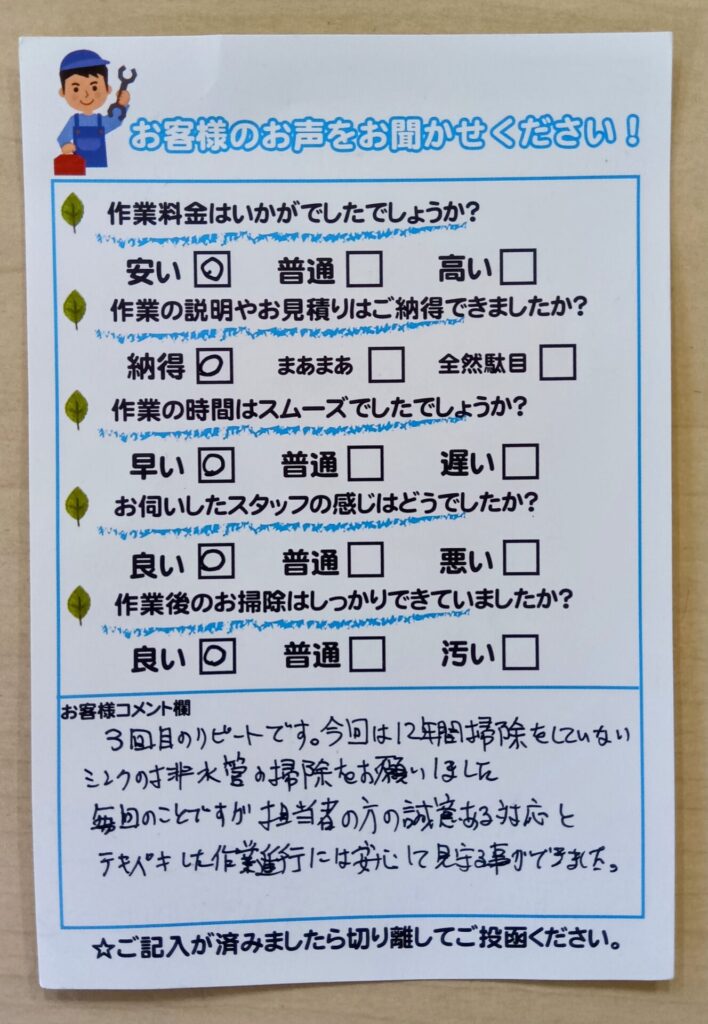 お客様のお声をお聞かせください！
作業料金はいかがでしたでしょうか？
安い 普通 高い
作業の説明やお見積りはご納得できましたか？
納得 まあまあ 全然駄目
作業の時間はスムーズでしたでしょうか？
早い 普通 遅い
お伺いしたスタッフの感じはどうでしたか？
良い 普通 悪い
作業後のお掃除はしっかりできていましたか？
良い 普通 汚い
お客様コメント欄
3回目のリピートです。今回は12年間掃除をしていない
シンクの排水管の掃除をお願いしました
毎回のことですが担当者の方の誠意ある対応と
テキパキした作業進行には安心して見守る事ができました。
☆ご記入が済みましたら切り離してご投函ください。